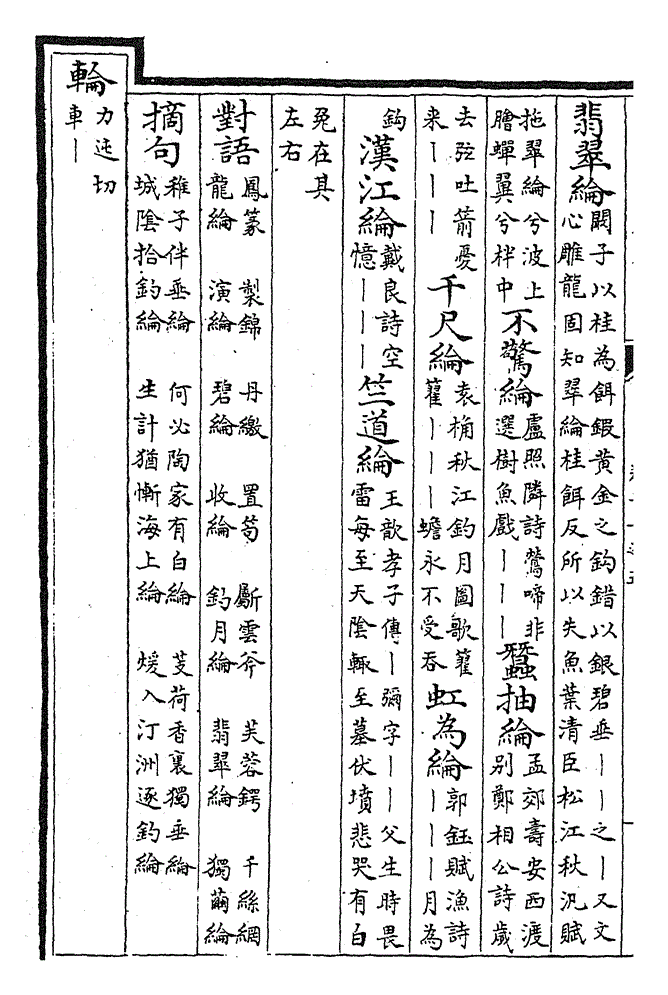 翡翠綸
闕子以桂為餌鍜黄金之鈎錯以銀碧垂丨丨之丨又文
心雕龍固知翠綸桂餌反所以失魚葉清臣松江秋汎賦
拖翠綸兮波上
膾蟬翼兮柈中
不驚綸
盧照隣詩鶯啼非
選樹魚戲丨丨丨
蠶抽綸
孟郊壽安西渡
别鄭相公詩歲
去弦吐箭憂
来丨丨丨
千尺綸
袁桷秋江釣月圖歌籊
籊丨丨丨蟾永不受吞
虹為綸
郭鈺賦漁詩
丨丨丨月為
鈎
漢江綸
戴良詩空
憶丨丨丨
竺道綸
王歆孝子傳丨彌字丨丨父生時畏
雷每至天陰輙至墓伏墳悲哭有白
兔在其
左右
對語
鳳篆 製錦 丹繳 置笱 斸雲斧 芙蓉鍔 千絲網
龍綸 演綸 碧綸 收綸 釣月綸 翡翠綸 獨繭綸
摘句
稚子伴垂綸 何必陶家有白綸 芰荷香裏獨垂綸
城陰拾釣綸 生計猶慚海上綸 煖入汀洲逐釣綸
輪
力迍切
車丨